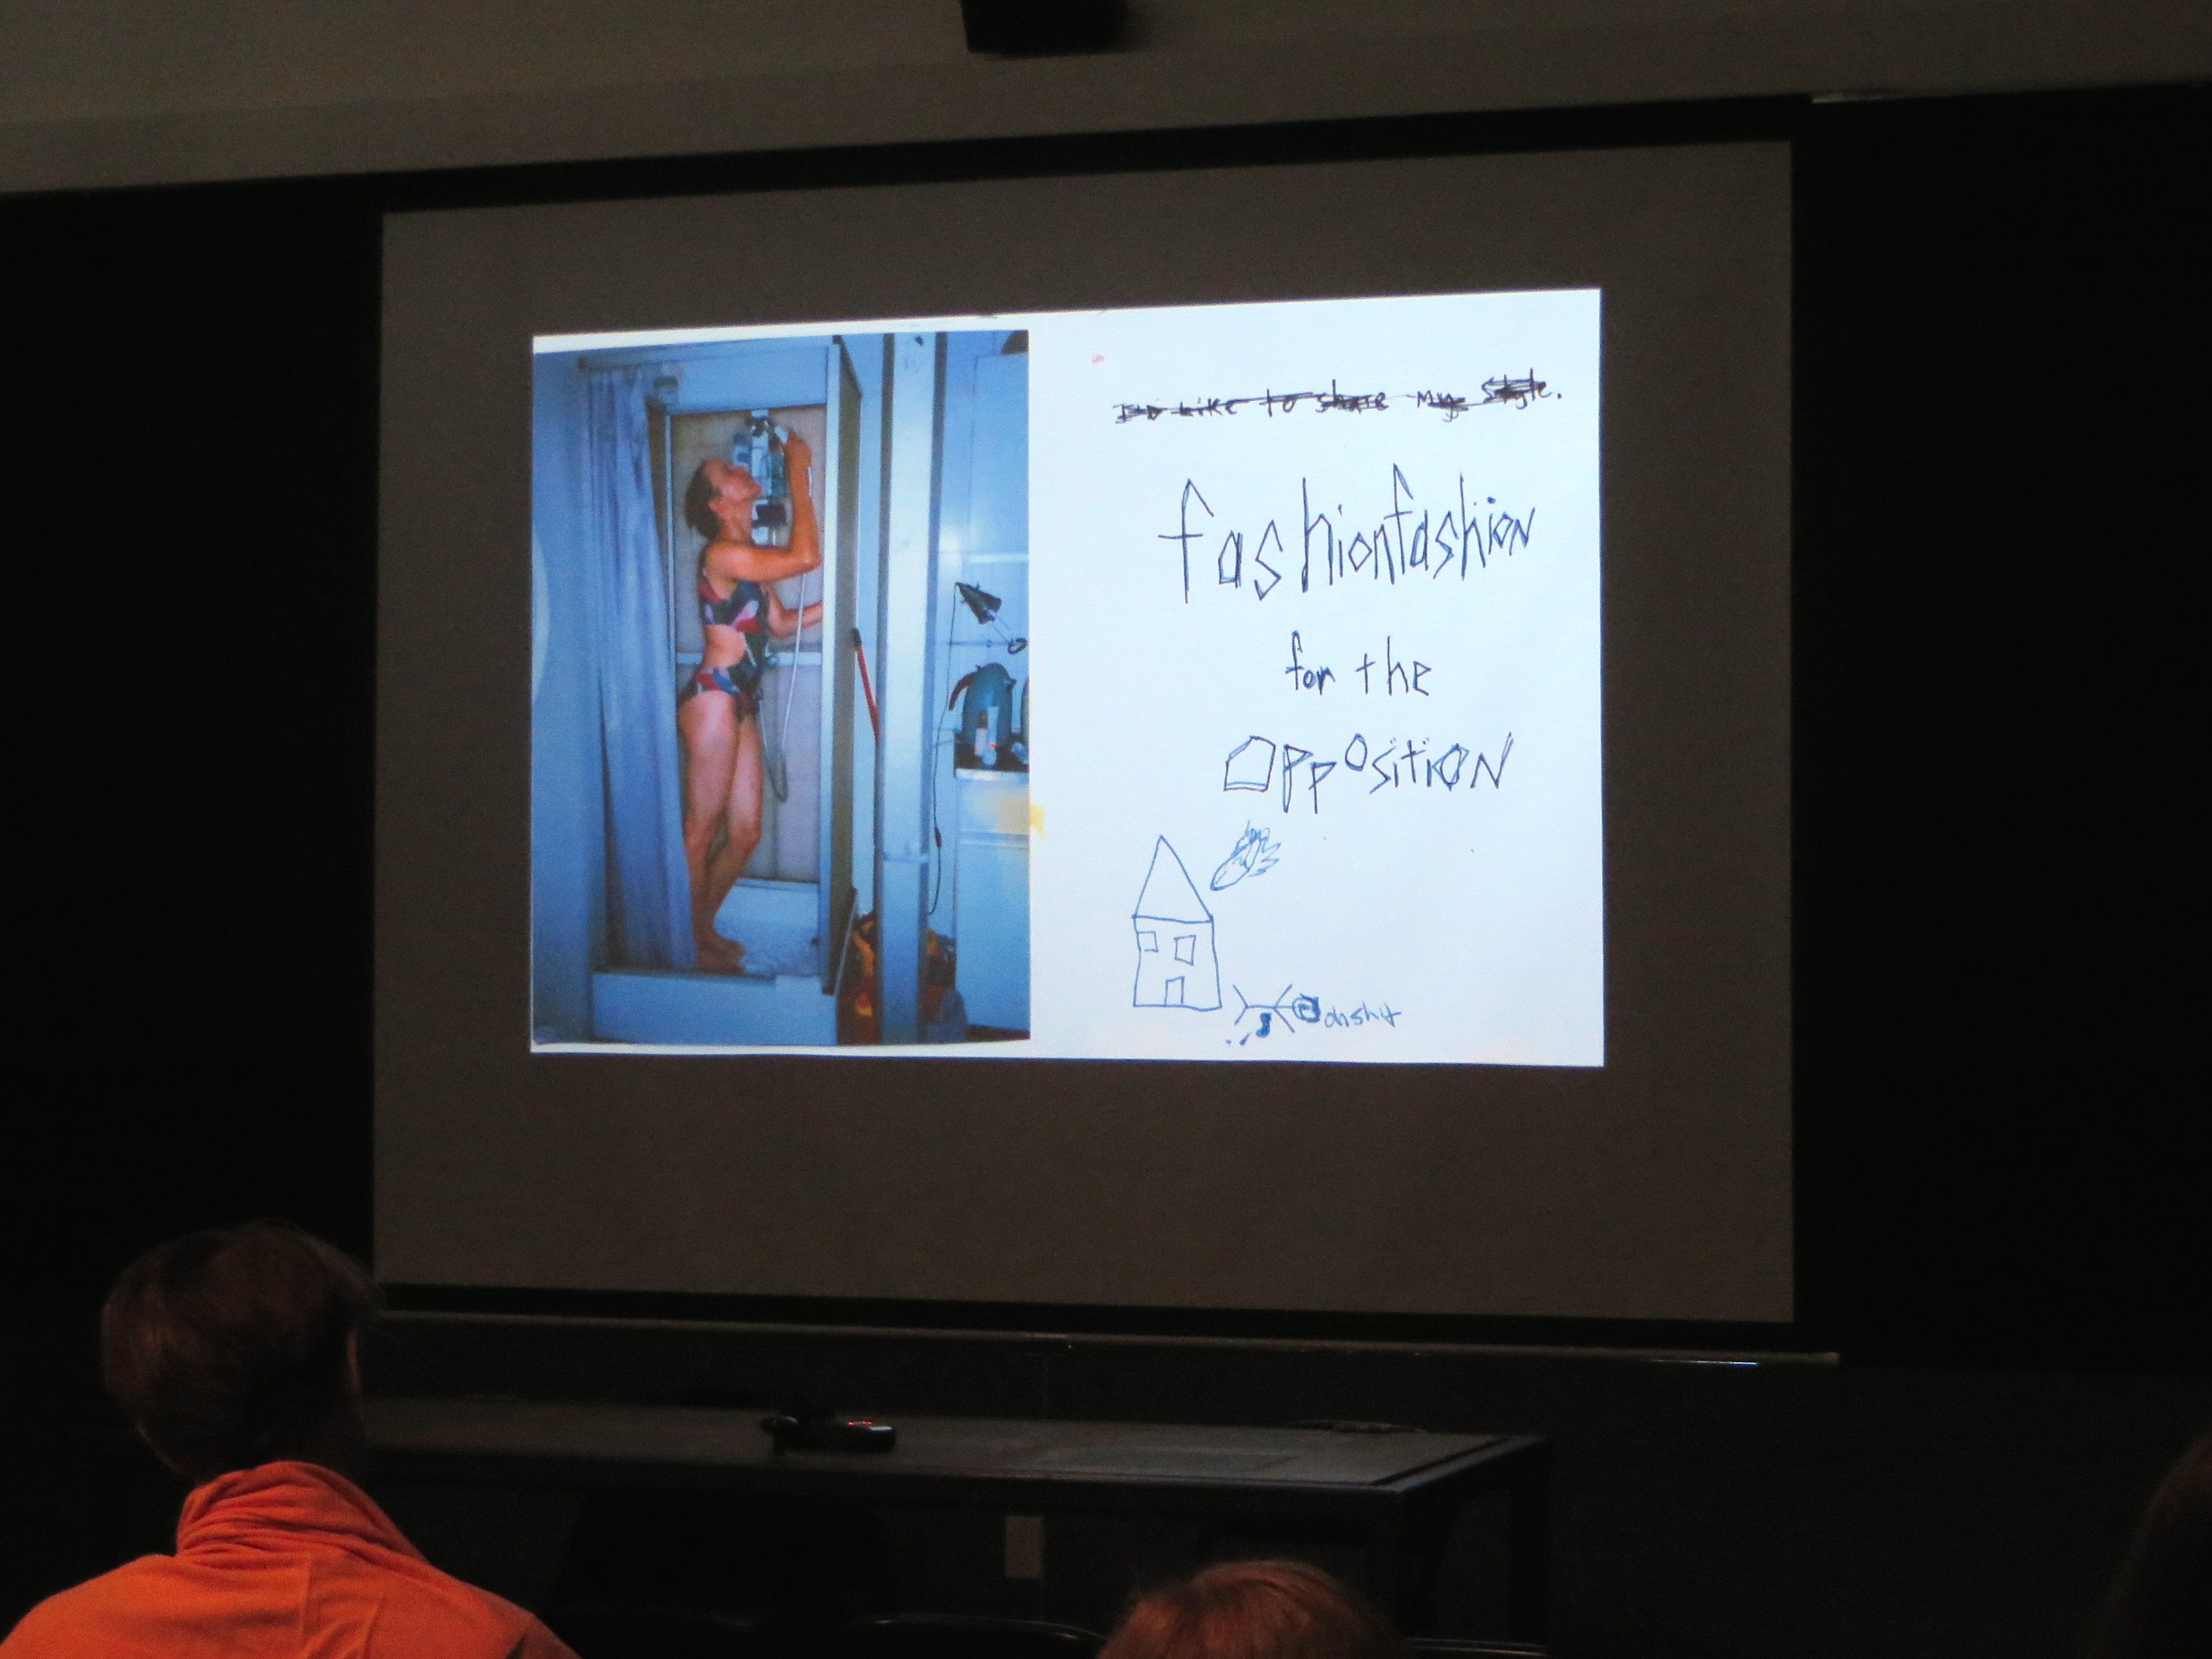 I'D Like to share My Style.
fashionfashion
for the
OppOsitiON
ohshit